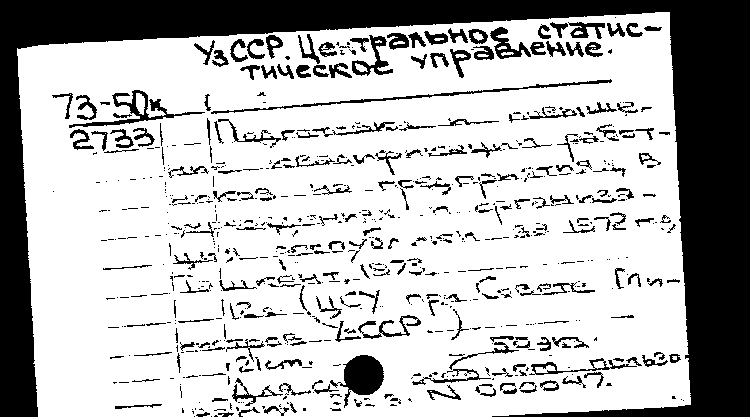 УзССР. Центральное статис-
тическое управление.
73-50к
2733
Подготовка и повыше-
ние квалификации работ-
ников на предприятиях, в
учреждениях и организа-
циях республики за 1972 год
Ташкент. 1973.
12с (ЦСУ при Совете Ми-
нистров УзССР)
21см. 50 экз.
Для пользо-
вания. N 000047.